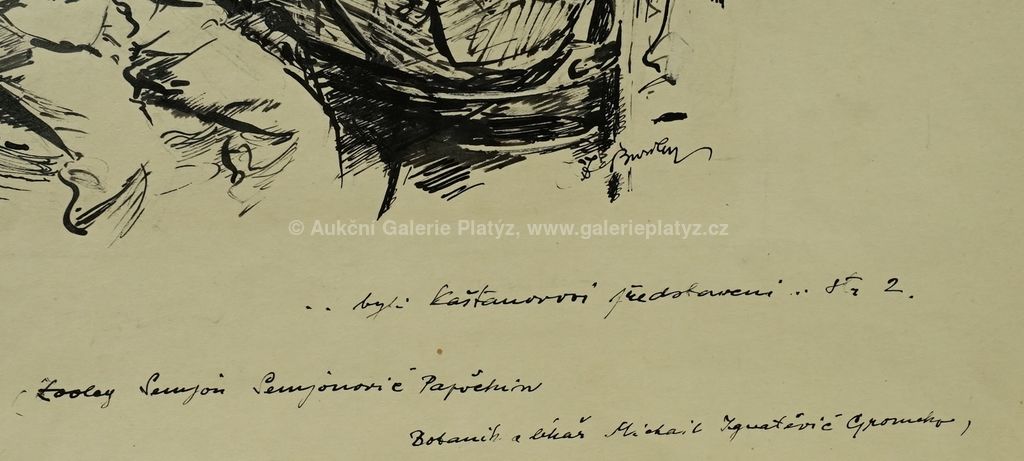 Z. Burian
© Aukční Galerie Platýz, www.galerieplatyz.cz
.. byli Kaštanovovi představeni .. str 2.
( Zoolog Semjon Semjonovič Papočkin
Botanik a lékař Michail Ignatěvič Gromeko,